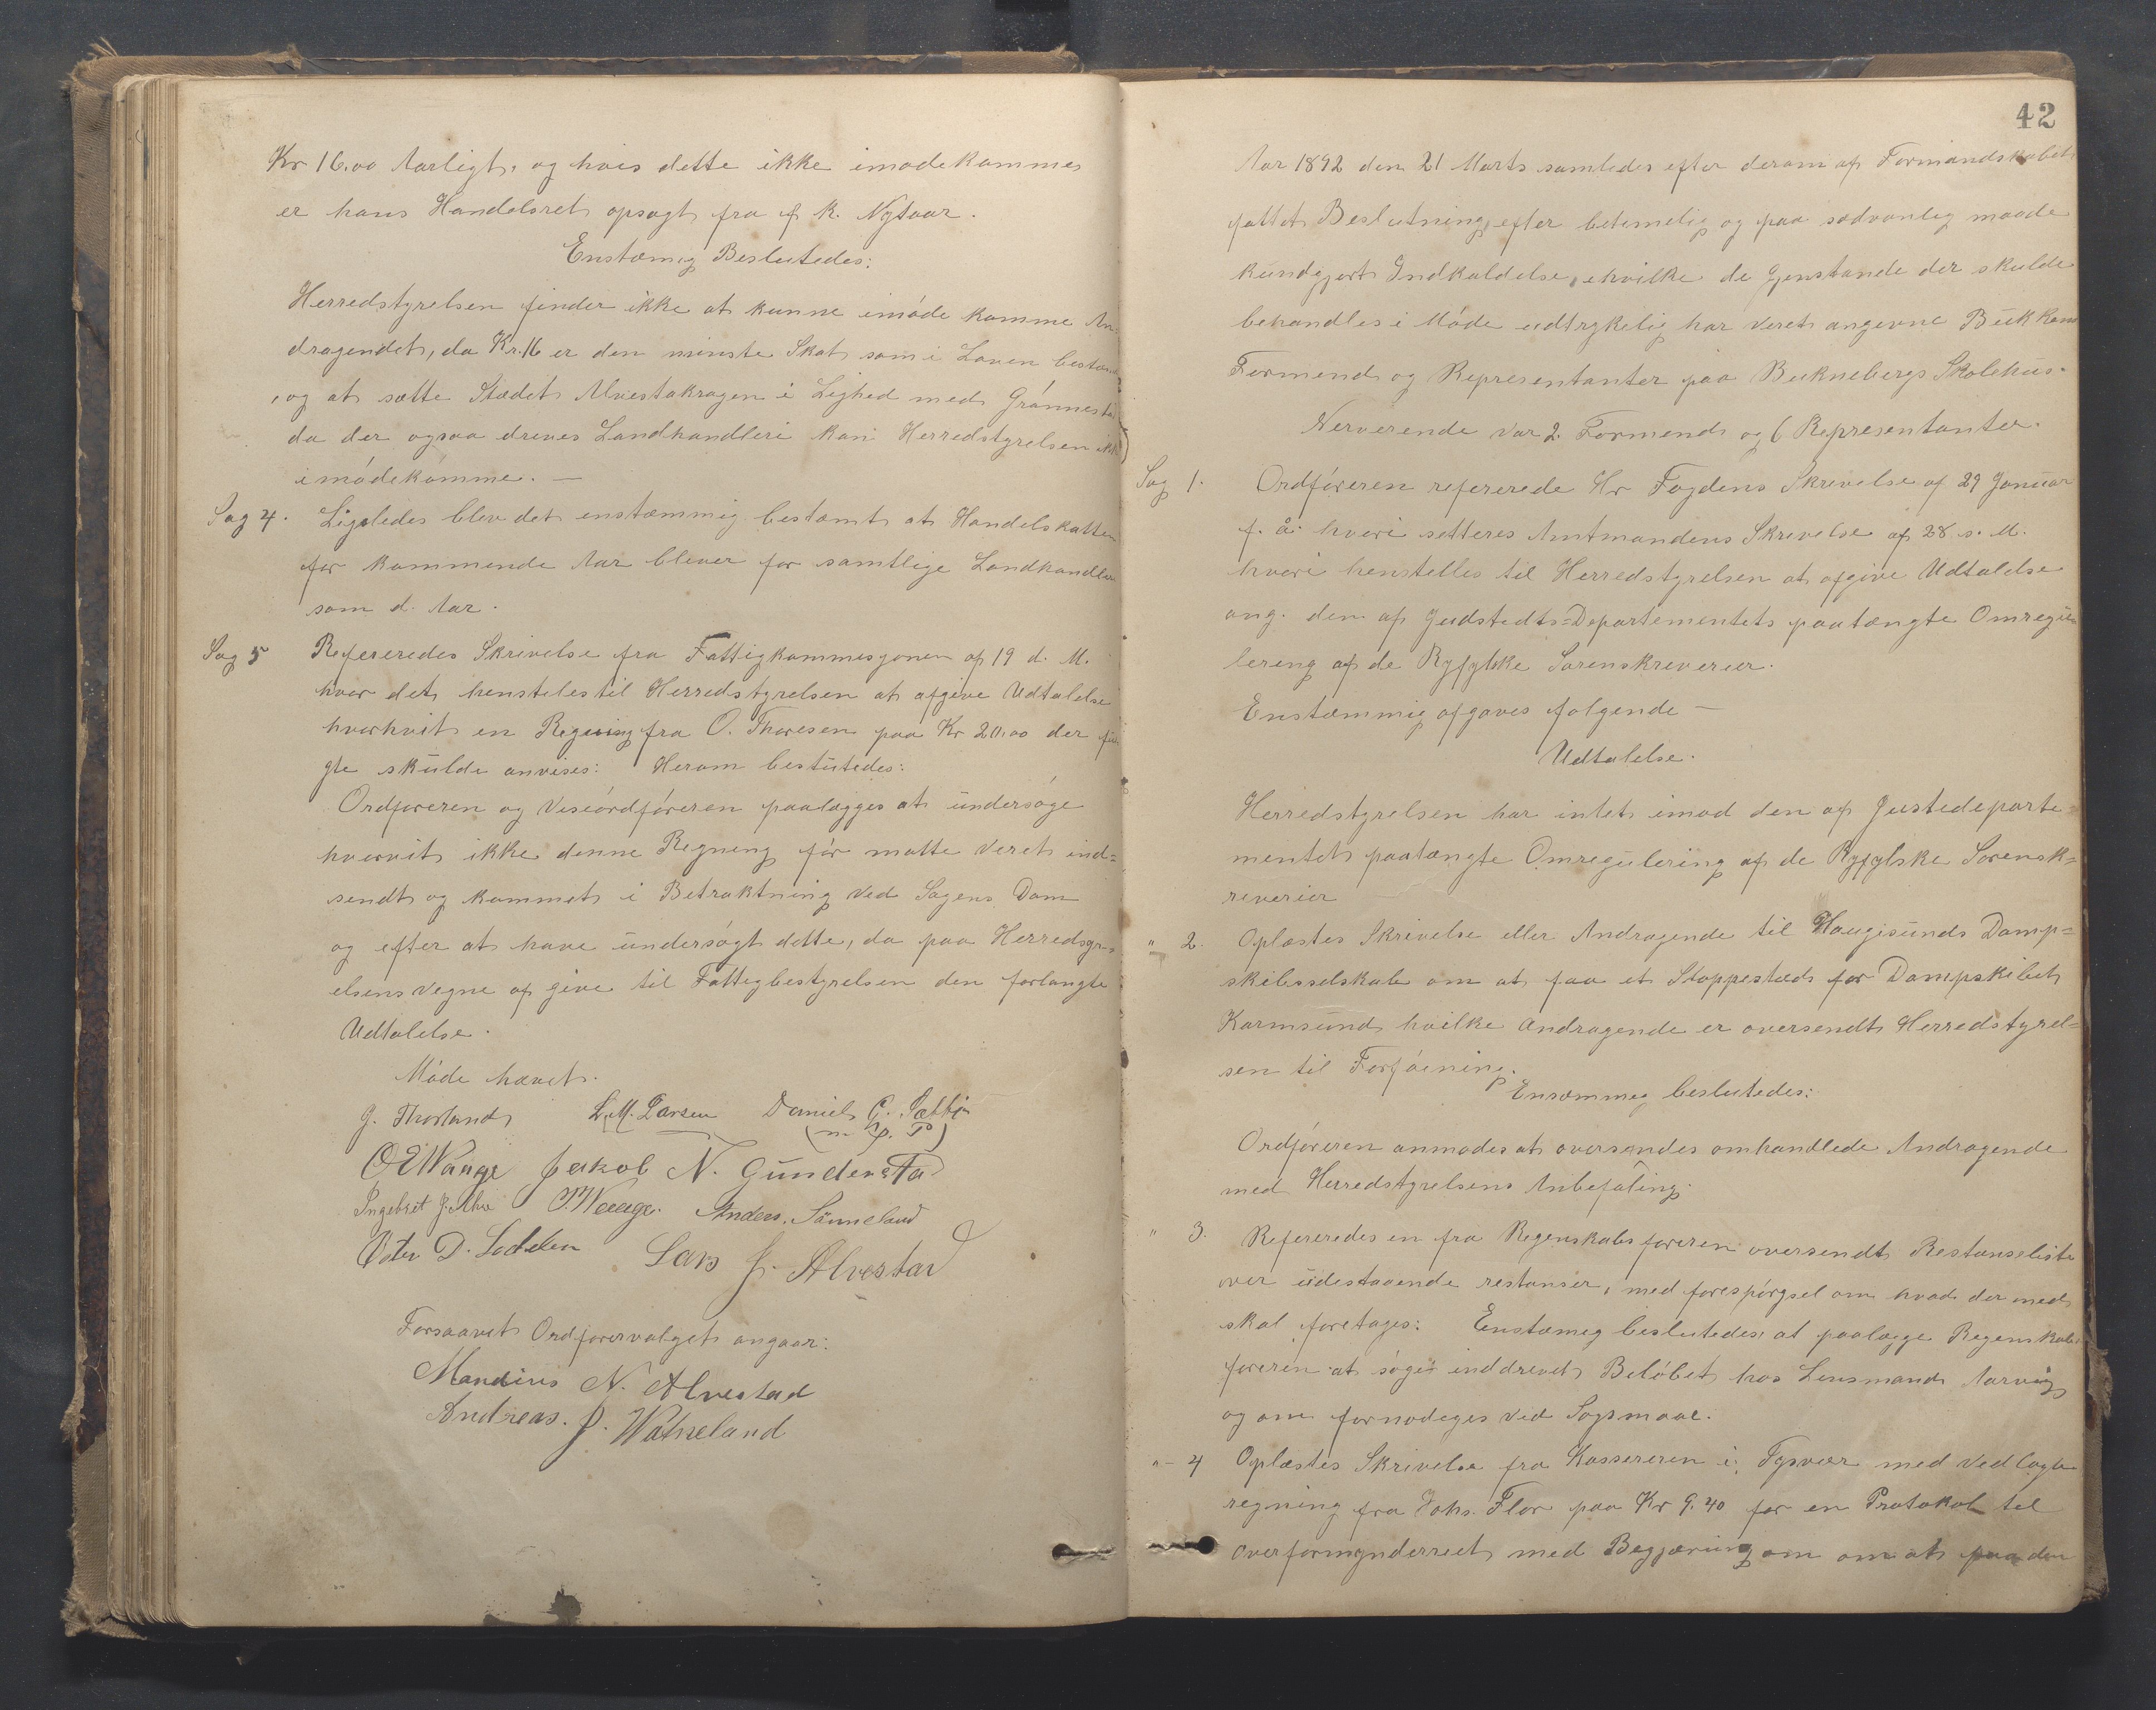 Kr 16.00 Aarligt, og hvis dette ikke imødekommes
er hans Handelsret opsagt fra f K. Nytaar.
Enstæmig Beslutedes:
Herredstyrelsen finder ikke at kunne imøde komme An-
dragendet, da Kr. 16 er den minste Skat som i Loven bestem
, og at sætte Stædet Alvestakragen i Lighed med Grønnesta
da der ogsaa dreves Landhandleri kan Herredstyrelsen ikke
imødekomme. —
Sag 4. Ligeledes blev det enstæmmig bestemt at Handelskatten
for kommende Aar bliver for samtlige Landhandlere
som d. Aar.
Sag 5 Refereredes Skrivelse fra Fattigkommesjonen af 19 d. M.
hvor det henstiles til Herredstyrelsen at afgive Udtalelse
hvorhvit en Regning fra O. Thoresen paa Kr 20.00 der
gte skulde anvises: Herom beslutedes:
Ordføreren og Viseordføreren paalægges at undersøge
hvorvit ikke denne Regning før matte veret ind=
sendt og kommet i Betraktning ved Sagens Dom
og efter at have undersøgt dette, da paa Herredsyr=
elsens vegne af give til Fattigbestyrelsen den forlangte
Udtalelse.
Møde hævet.
G. Thorland L. M. Larsen Daniel G. Sættøi
(m. p. P)
O E Waage Jakob N. Gundersta
Ingebret J. Aln P. Waage. Anders. Sønneland
Peter D. Lodden Lars J. Alvestad
Forsaavit Ordførervalget angaar:
Mandius N. Alvestad
Andreas. J. Watneland
42
Aar 1892 den 21 Marts samledes efter derom af Formandskabet
fattet Beslutning, efter betimelig og paa sædvanleg maade
kundgjort Indkaldelse, ihvilke de Gjenstande der skulde
behandles i Møde udtrykelig har veret angivne Bukkens
Formend og Representanter paa Buknebergs Skolehus.
Nerværende var 2. Formend og 6 Representanter.
Sag 1. Ordføreren refererede Hr Fogdens Skrivelse af 29 Januar
f. å. hvori setteres Amtmandens Skrivelse af 28. s. M.
hvori henstelles til Herredstyrelsen at afgive Udtalelse
ang. den af Judstedts=Departementets paatængte Omregu
lering af de Ryfylske Sorenskreverier.
Enstæmmig afgaves følgende —
Udtalelse.
Herredstyrelsen har intet imod den af Justedeparte=
mentet paatængte Omregulering af de Ryfylske Sorensk=
reverier
" 2. Oplæstes Skrivelse eller Andragende til Haugisunds Damp=
skibsselskab om at faa et Stoppested for Dampskibet
Karmsund hvilke andragende er oversendt Herredstyrel=
sen til Forføining.
Ensæmmeg beslutedes:
Ordføreren anmodes at oversendes omhandlede Andragende
med Herredstyrelsens Anbefaling.
" 3. Refereredes en fra Regenskabsføreren oversendt Restanseliste
over udestaaende restanser, med forespørgsel om hvad der med
skal foretages: Enstæmeg beslutedes at paalægge Regenskabs
føreren at søge inddrevet Beløbet hos Lensmand Aarvig
og om fornødeges ved Søgsmaal.
" - 4 Oplæstes Skrivelse fra Kassereren i Tysvær med vedlagte
regning fra Johs. Flor paa Kr 9.40 for en Protokol til
overformynderreet med Begjæring om om at faa den